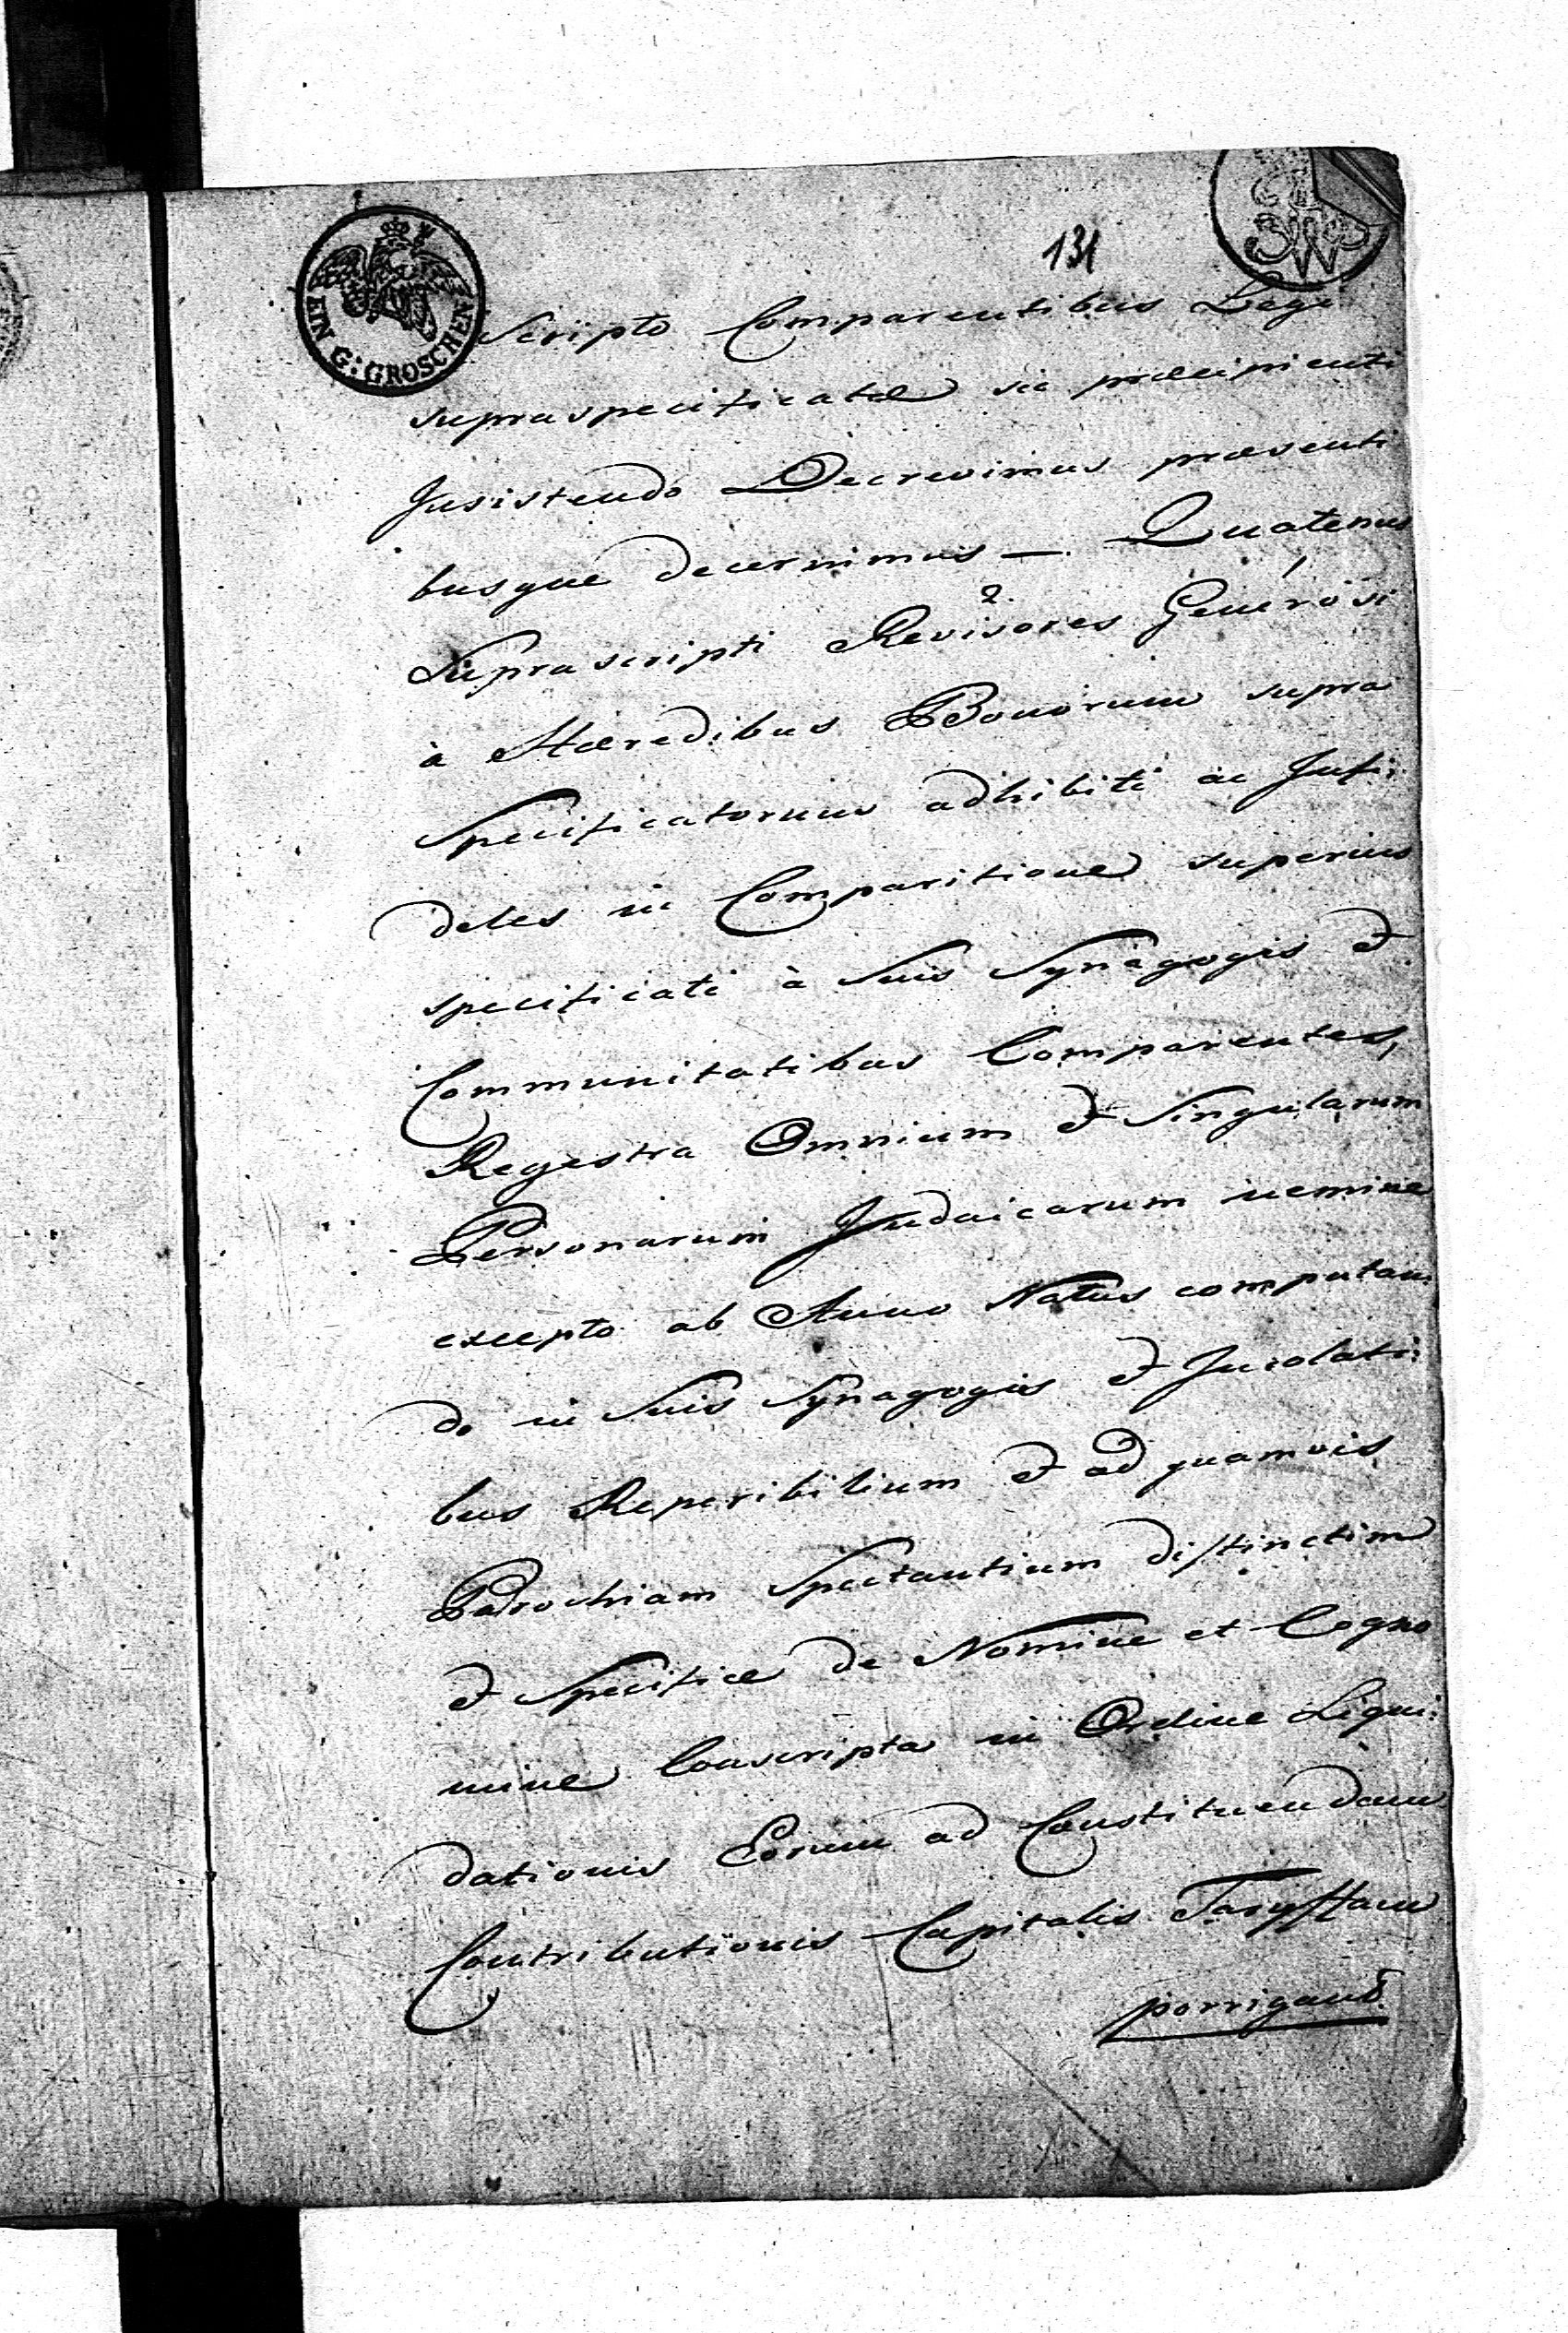 131
EIN G: GROSCHEN
Scripto Comparentibus Lege
supraspecificatæ sic præcipienti
Insistendo Decrevimus præsenti
busque decernimus —. Quatenus
Suprascripti Revisores Generosi
à Hæredibus Bonorum supra
Specificatorum adhibiti ac Infi:
deles in Comparitione superius
specificati à Suis Synagogis et
Communitatibus Comparentes,
Regestra Omnium et Singularum
Personarum Judaicarum nemine
excepto ab Anno Natus computan:
do in Suis Synagogis et Incolati:
bus Reperibilium et ad quamvis
Parochiam Spectantium distinctim
et Specifice de Nomine et Cogno
mine Conscripta in Ordine Liqui:
dationis Eorum ad Constituendam
Contributionis Capitalis Taryffam
porrigant.